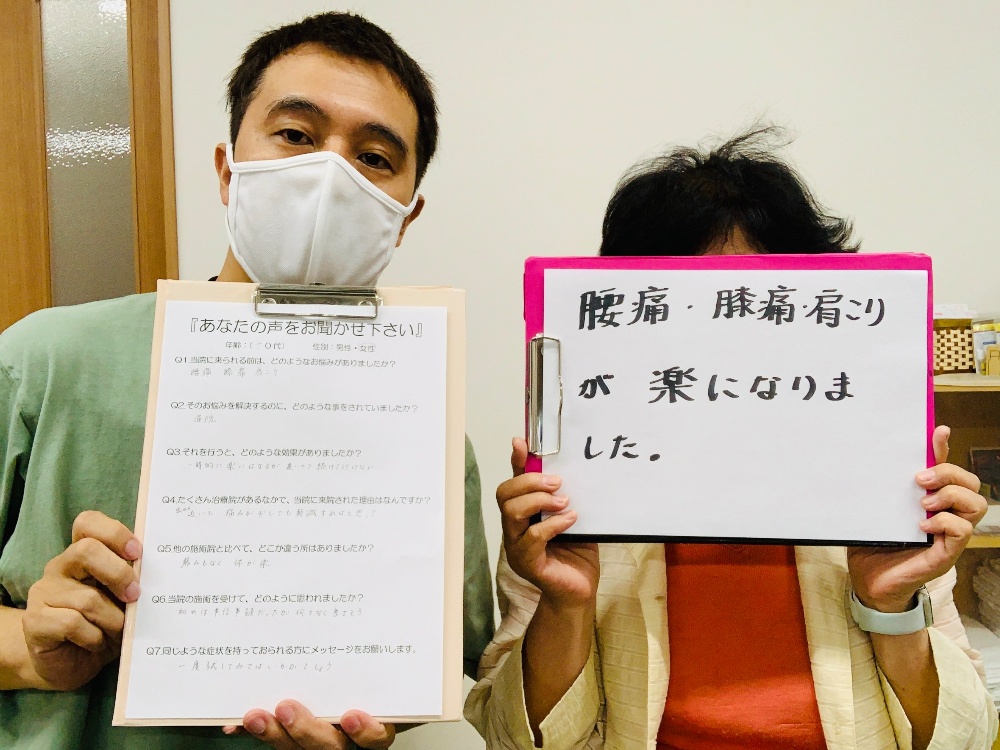 『あなたの声をお聞かせ下さい』
年齢:( 0代) 性別:男性・女性
Q1.当院に来られる前は、どのようなお悩みがありましたか?
腰痛 膝痛 肩こり
Q2.そのお悩みを解決するのに、どのような事をされていましたか?
Q3.それを行うと、どのような効果がありましたか?
一時的に楽にはなるが
Q4.たくさん治療院があるなかで、当院に来院された理由はなんですか?
痛みが少しでも軽減すればと思
Q5.他の施術院と比べて、どこか違う所はありましたか?
体が楽
Q6.当院の施術を受けて、どのように思われましたか?
初めは半信半疑だったが
Q7.同じような症状を持っておられる方にメッセージをお願いします。
一度試してみてはいかがでしょう
腰痛・膝痛・肩こり
が 楽になりま
した。